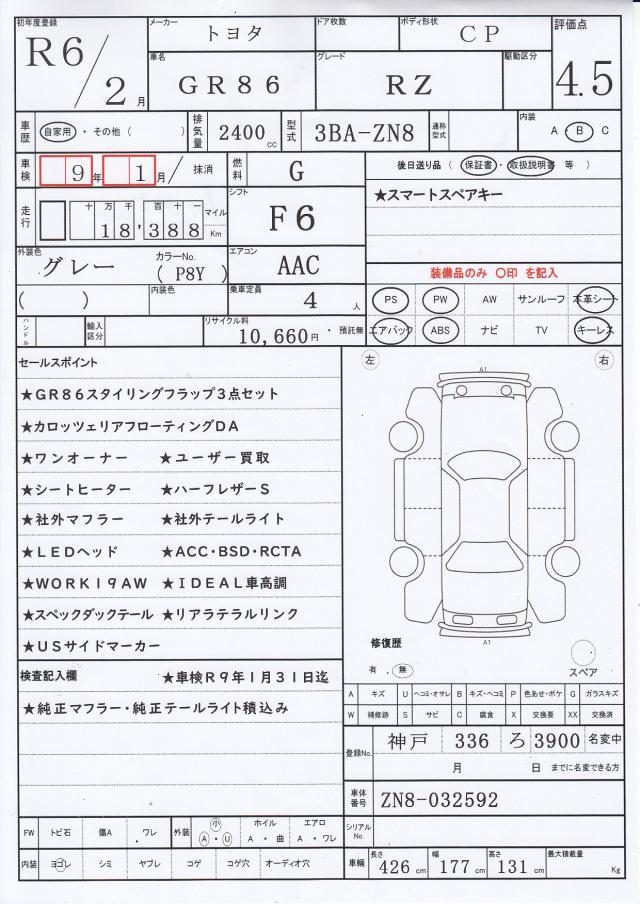 初年度登録 R6/2月
メーカー トヨタ
ドア枚数
ボディ形状 CP
評価点 4.5
車名 GR86
グレード RZ
駆動区分
車歴 自家用・その他( )
排気量 2400 cc
型式 3BA-ZN8
通称型式
内装 A・B C
車検 9年 1月/ 抹消
燃料 G
後日送り品(保証書・取扱説明書 等)
★スマートスペアキー
走行 十万千百十一 18,388 マイル Km
シフト F6
外装色 グレー
カラーNo. (P8Y)
エアコン AAC
装備品のみ 〇印 を記入
( )
内装色
乗車定員 4人
PS PW AW サンルーフ 本革シート
エアバック ABS ナビ TV キーレス
ハンドル
輸入区分
リサイクル料 10,660円・預託無
セールスポイント
★GR86スタイリングフラップ3点セット
★カロッツェリアフローティングDA
★ワンオーナー ★ユーザー買取
★シートヒーター ★ハーフレザーS
★社外マフラー ★社外テールライト
★LEDヘッド ★ACC・BSD・RCTA
★WORK19AW ★IDEAL車高調
★スペックダックテール ★リアラテラルリンク
★USサイドマーカー
左 右
A1
A1
修復歴
有 . 無
スペア
検査記入欄 ★車検R9年1月31日迄
★純正マフラー・純正テールライト積込み
A キズ U ヘコミ・オサレ B キズ・ヘコミ P 色あせ・ボケ G ガラスキズ
W 補修跡 S サビ C 腐食 X 交換要 XX 交換済
登録No. 神戸 336 ろ 3900 名変中
月 日 までに名変できる方
車体番号 ZN8-032592
シリアルNo.
FW トビ石 傷A ワレ
外装 小 A・U
ホイル A・曲
エアロ A・ワレ
内装 ヨゴレ シミ ヤブレ コゲ コゲ穴 オーディオ穴
車輌 長さ 426cm 幅 177cm 高さ 131cm 最大積載量 Kg